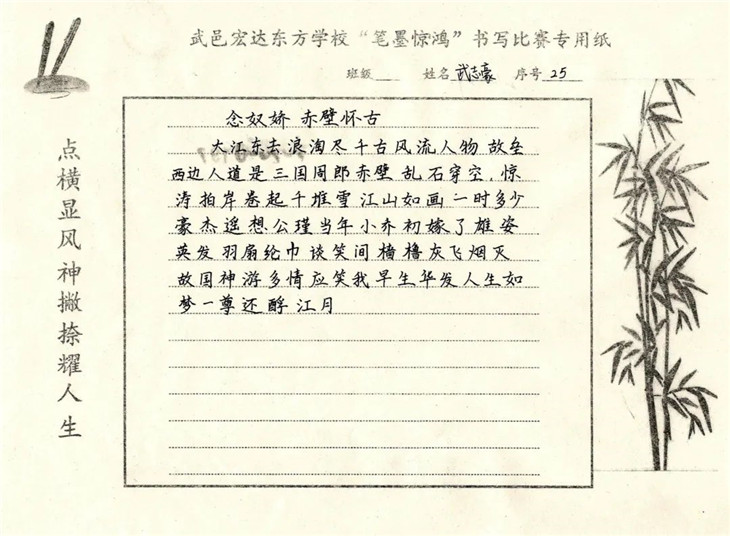 武邑宏达东方学校“笔墨惊鸿”书写比赛专用纸
班级 姓名 武志豪 序号 25
点横显风神撇捺耀人生
念奴娇 赤壁怀古
大江东去浪淘尽千古风流人物 故垒
西边人道是三国周郎赤壁 乱石穿空,惊
涛拍岸卷起千堆雪 江山如画 一时多少
豪杰遥想公瑾当年小乔初嫁了 雄姿
英发 羽扇纶巾 谈笑间 樯橹灰飞烟灭
故国神游多情应笑我早生华发人生如
梦一尊还酹 江月